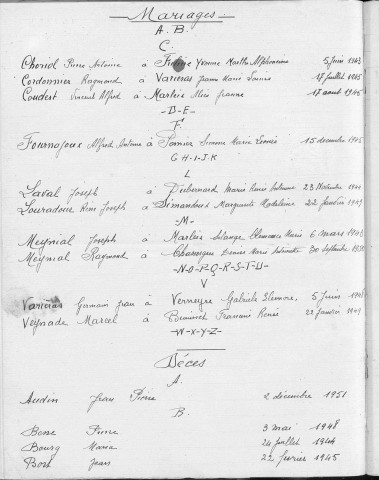 Mariages
A. B.
C.
Choriol Pierre Antoine à Yvonne Marthe 5 Juin 1943
Cordonnier Raymond à Varieras Jeanne Marie Louise 17 Juillet 1945
Coudert Vincent Alfred à Marleix Alice Jeanne 17 aout 1945
-D-E-
F
Alfred Antoine à Simone Marie 15 décembre 1945
G-H-I-J-K
L
Laval Joseph à Marie 23 Novembre 1944
Louradour René Joseph à Simandoux Marguerite Madeleine 22 Janvier 1949
-M-
Meynial Joseph à Marleix Solange Marie 6 mars 1942
Meynial Raymond à Denise Marie Antoinette 30 septembre
-N-O-P-Q-R-S-T-U-
V
Varieras Germain Jean à Verneyre Gabrielle 5 Juin 1948
Veysade Marcel à Renée 22 Janvier 1949
-W-X-Y-Z-
Décès
A.
Audin Jean Pierre 2 décembre 1951
B.
Besse Pierre 3 mai 1948
Bourg Maria 24 Juillet 1944
Bort Jean 22 février 1945